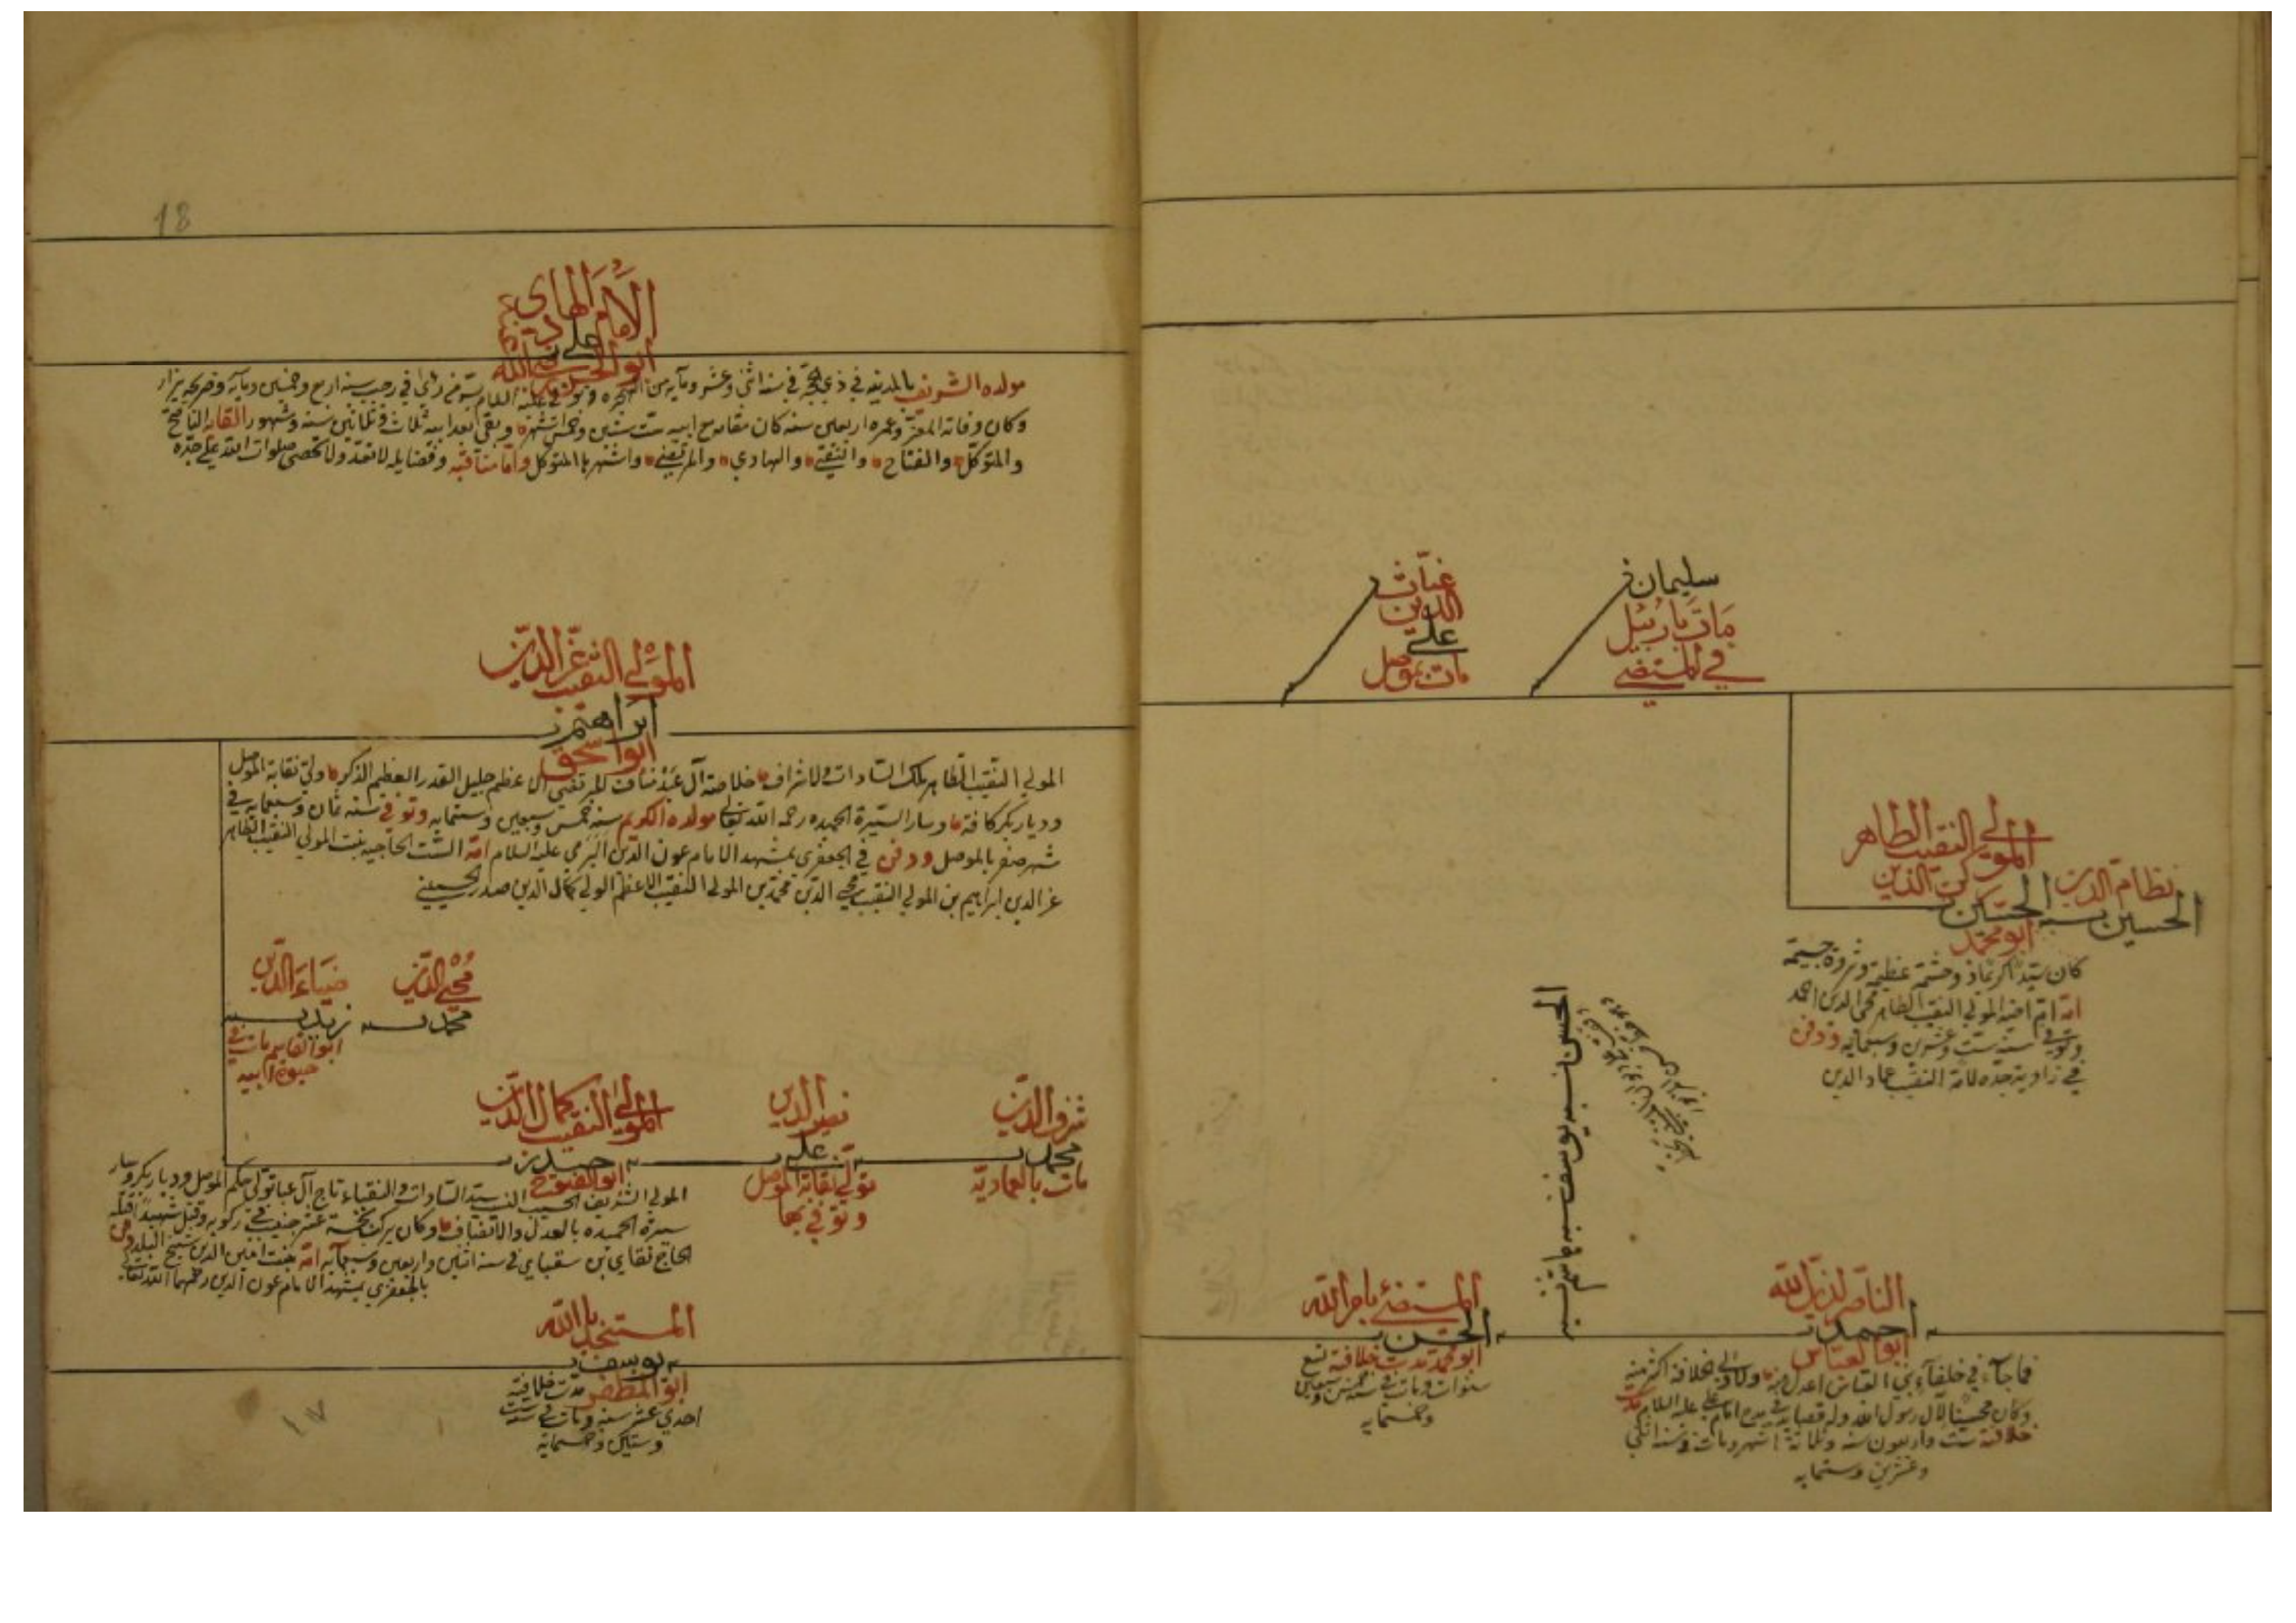 سليمان
مات باربيل
في المستضي
غياث
الدين
علي
مات بموصل
المولي النقيب الطاهر
ركن الدين
الحسن بن
ابو محمد
نظام الدين
الحسين بن
كان سيدا كريما ذو حشمة عظيمة وثروة جسيمة
امه ام اخيه المولي النقيب الطاهر محي الدين احمد
وتوفي سنه ست وعشرين وسبعمايه ودفن
في زاوية جده لامه النقيب عماد الدين
الحسن بن يوسف بن
الناصر لدين الله
احمد بن
ابو العباس
فما جاء في خلفاء بني العباس اعدل منه ولا ولي الخلافة اكثر منه
وكان محبينا لآل رسول الله وله قصايد في مدح امام علي عليه السلام مدت
خلافته ست واربعون سنه وثلاثة اشهر ومات في سنه اثني
وعشرين وستمايه
المستضئ بامر الله
الحسن بن
ابو محمد مدت خلافته تسع
سنوات ومات في سنه خمس وسبعين
وخمسمايه
18
الامام الهادي
علي بن
ابو الحسن
مولده الشريف بالمدينه في ذي الحجه في سنه اثني وعشر ومايه من الهجره وتوفي عليه السلام بسر من راي في رجب سنه اربع وخمسين ومايه وضريحه يزار
وكان وفاته المعتز وعمره اربعين سنه كان مقامه مع ابيه ست سنين وخمس اشهر وبقي بعد ابيه ثلاث وثلاثين سنه وشهور القابه الناصح
والمتوكل والفتاح والنقي والهادي والمرتضي واشتهر باالمتوكل واما مناقبه وفضايله لا تعد ولا تحصي صلوات الله علي جده
المولي النقيب عز الدين
ابراهيم بن
ابو اسحق
المولي النقيب الطاهر ملك السادات والاشراف خلاصة آل عبد مناف المرتضي الاعظم جليل القدر العظيم الذكر ولي نقابة الموصل
وديار بكر كافة وسار السيرة الحميده رحمه الله تعالي مولده الكريم سنه خمس وسبعين وستمايه وتوفي سنه ثمان وسبعمايه في
شهر صفر بالموصل ودفن في الجعفري بمشهد الامام عون الدين البرمي عليه السلام امه الست الحاجيه بنت المولي النقيب الطاهر
عز الدين ابراهيم بن المولي النقيب محي الدين محمد بن المولي النقيب الاعظم الولي كمال الدين حيدر الحسيني
محي الدين
محمد بن
ضياء الدين
زيد بن
ابو القاسم مات في
حيوة ابيه
شرف الدين
محمد بن
مات بالعمادية
نصير الدين
علي بن
تولي نقابة الموصل
وتوفي بها
المولي النقيب كمال الدين
حيدر بن
ابو الفتوح
المولي الشريف الحسيب النسيب سيد السادات والنقباء تاج آل عبا تولي حكم الموصل وديار بكر وسار
سيرة الحميده بالعدل والانصاف وكان يركب خمسة عشر جنيب في ركوبه وقتل شهيدا قتله
الحاج تقاي بن سقباي في سنه اثنين واربعين وسبعمايه امه بنت امين الدين شيخ البلد دفن
بالجعفري بمشهد الامام عون الدين رحمهما الله تعالي
المستنجد باالله
يوسف بن
ابو المظفر مدت خلافته
احدي عشر سنه ومات في سنه ست
وستين وخمسمايه
١٧